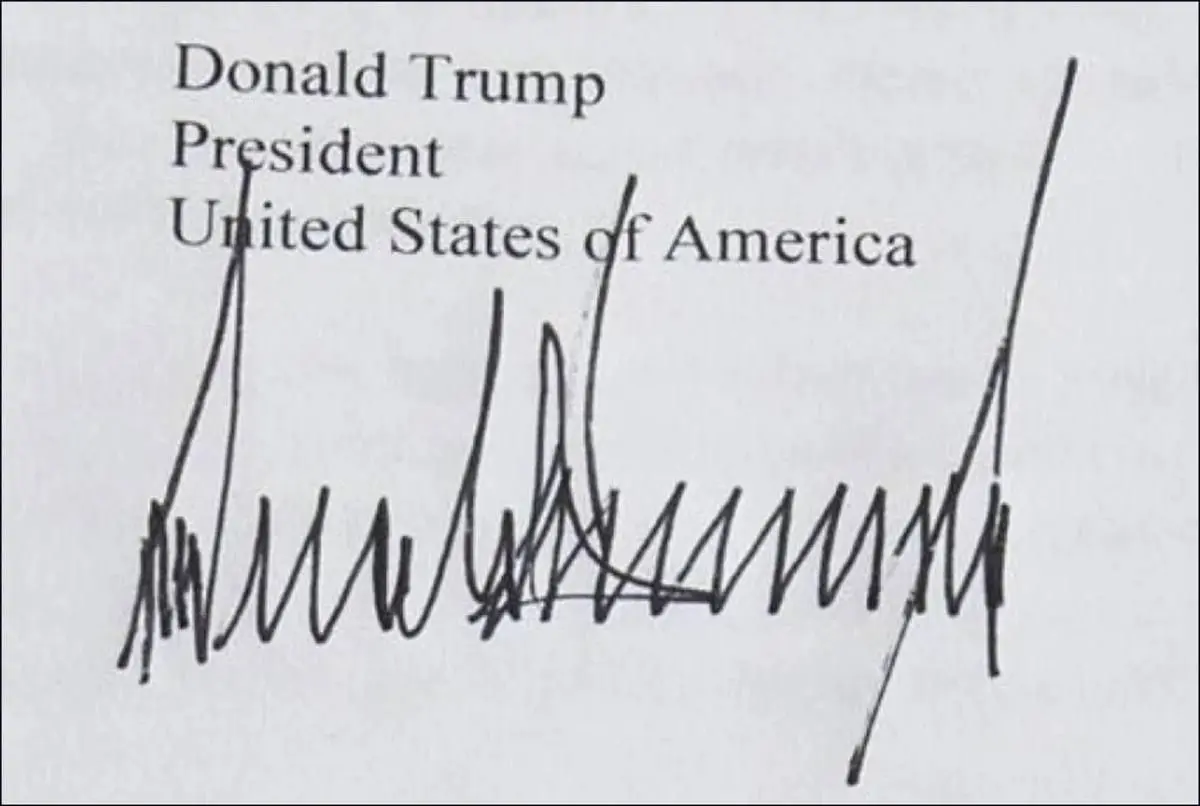 Donald Trump
President
United States of America